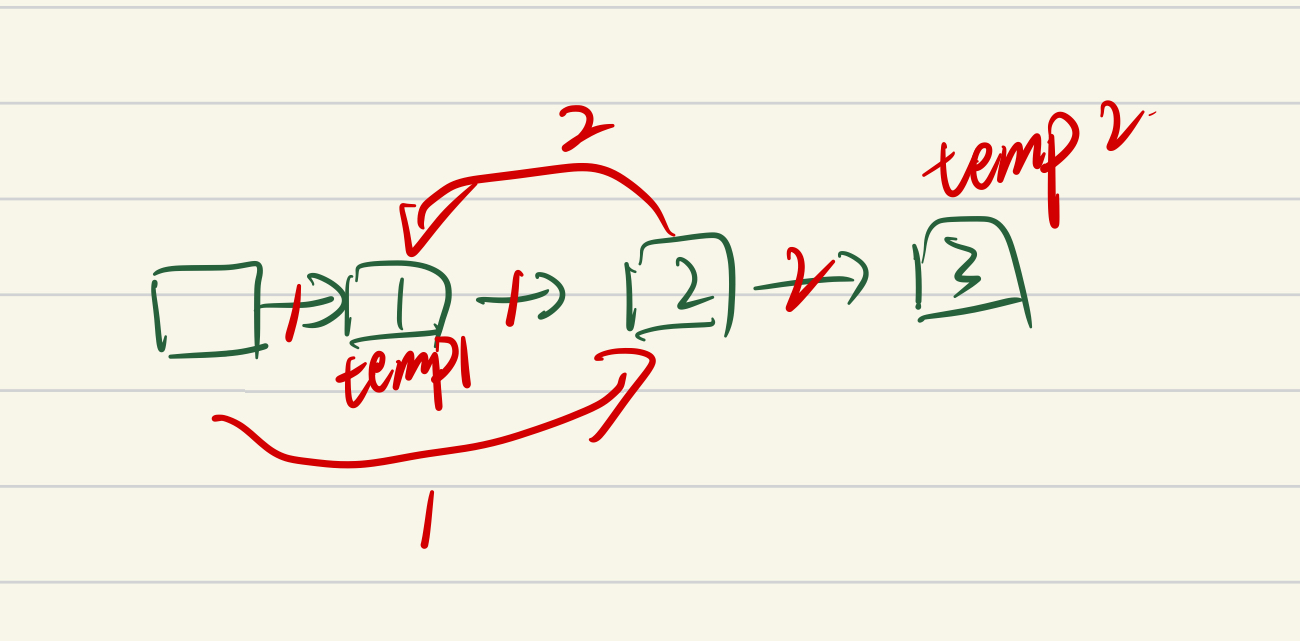 2
temp 2
1
2
3
temp1
1